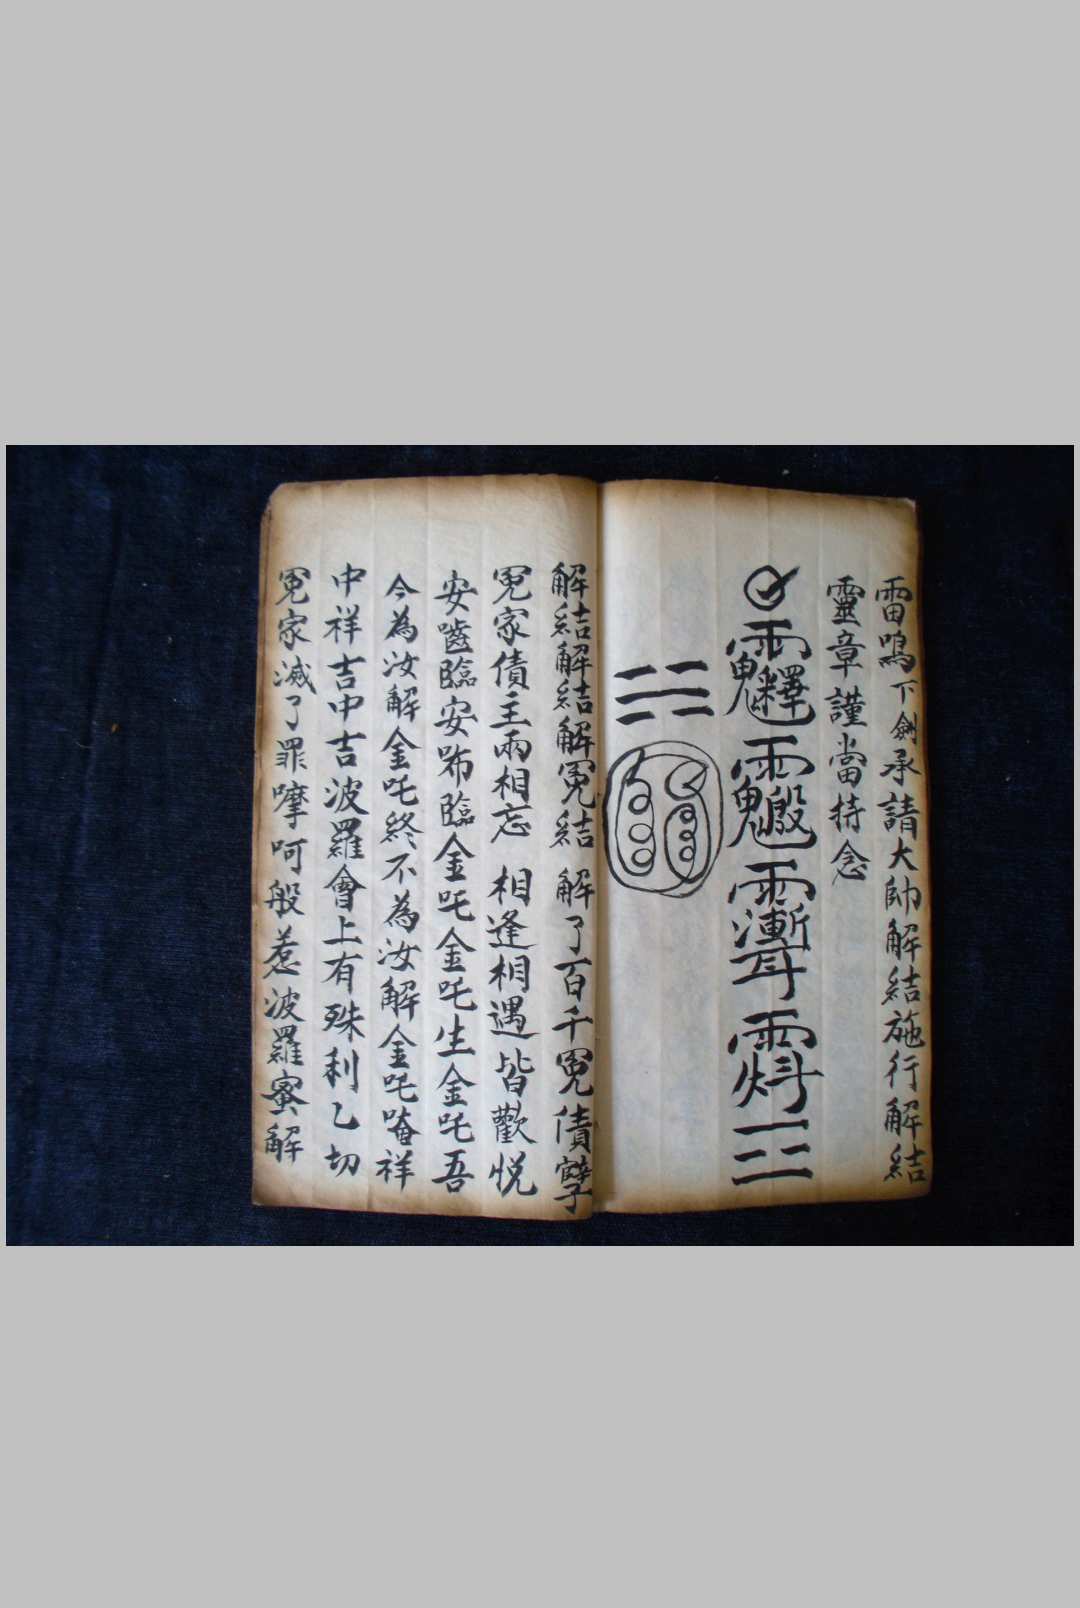 雷鳴下劍承請大帥解結施行解結
靈章謹當持念
三
解結解結解冤結 解了百千冤債孽
冤家債主兩相忘 相逢相遇皆歡悦
安嚙臨安㖊臨金吒金吒生金吒吾
今為汝解金吒終不為汝解金吒唵祥
中祥吉中吉波羅會上有殊利乙切
冤家滅了罪嚤呵般惹波羅蜜解